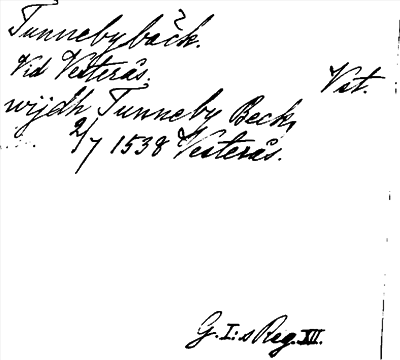 Tunnebybäck.
Vid Vesterås. Vst.
wijdh Tunneby Beck,
2/7 1538 Vesterås.
G. I:s Reg. XII.